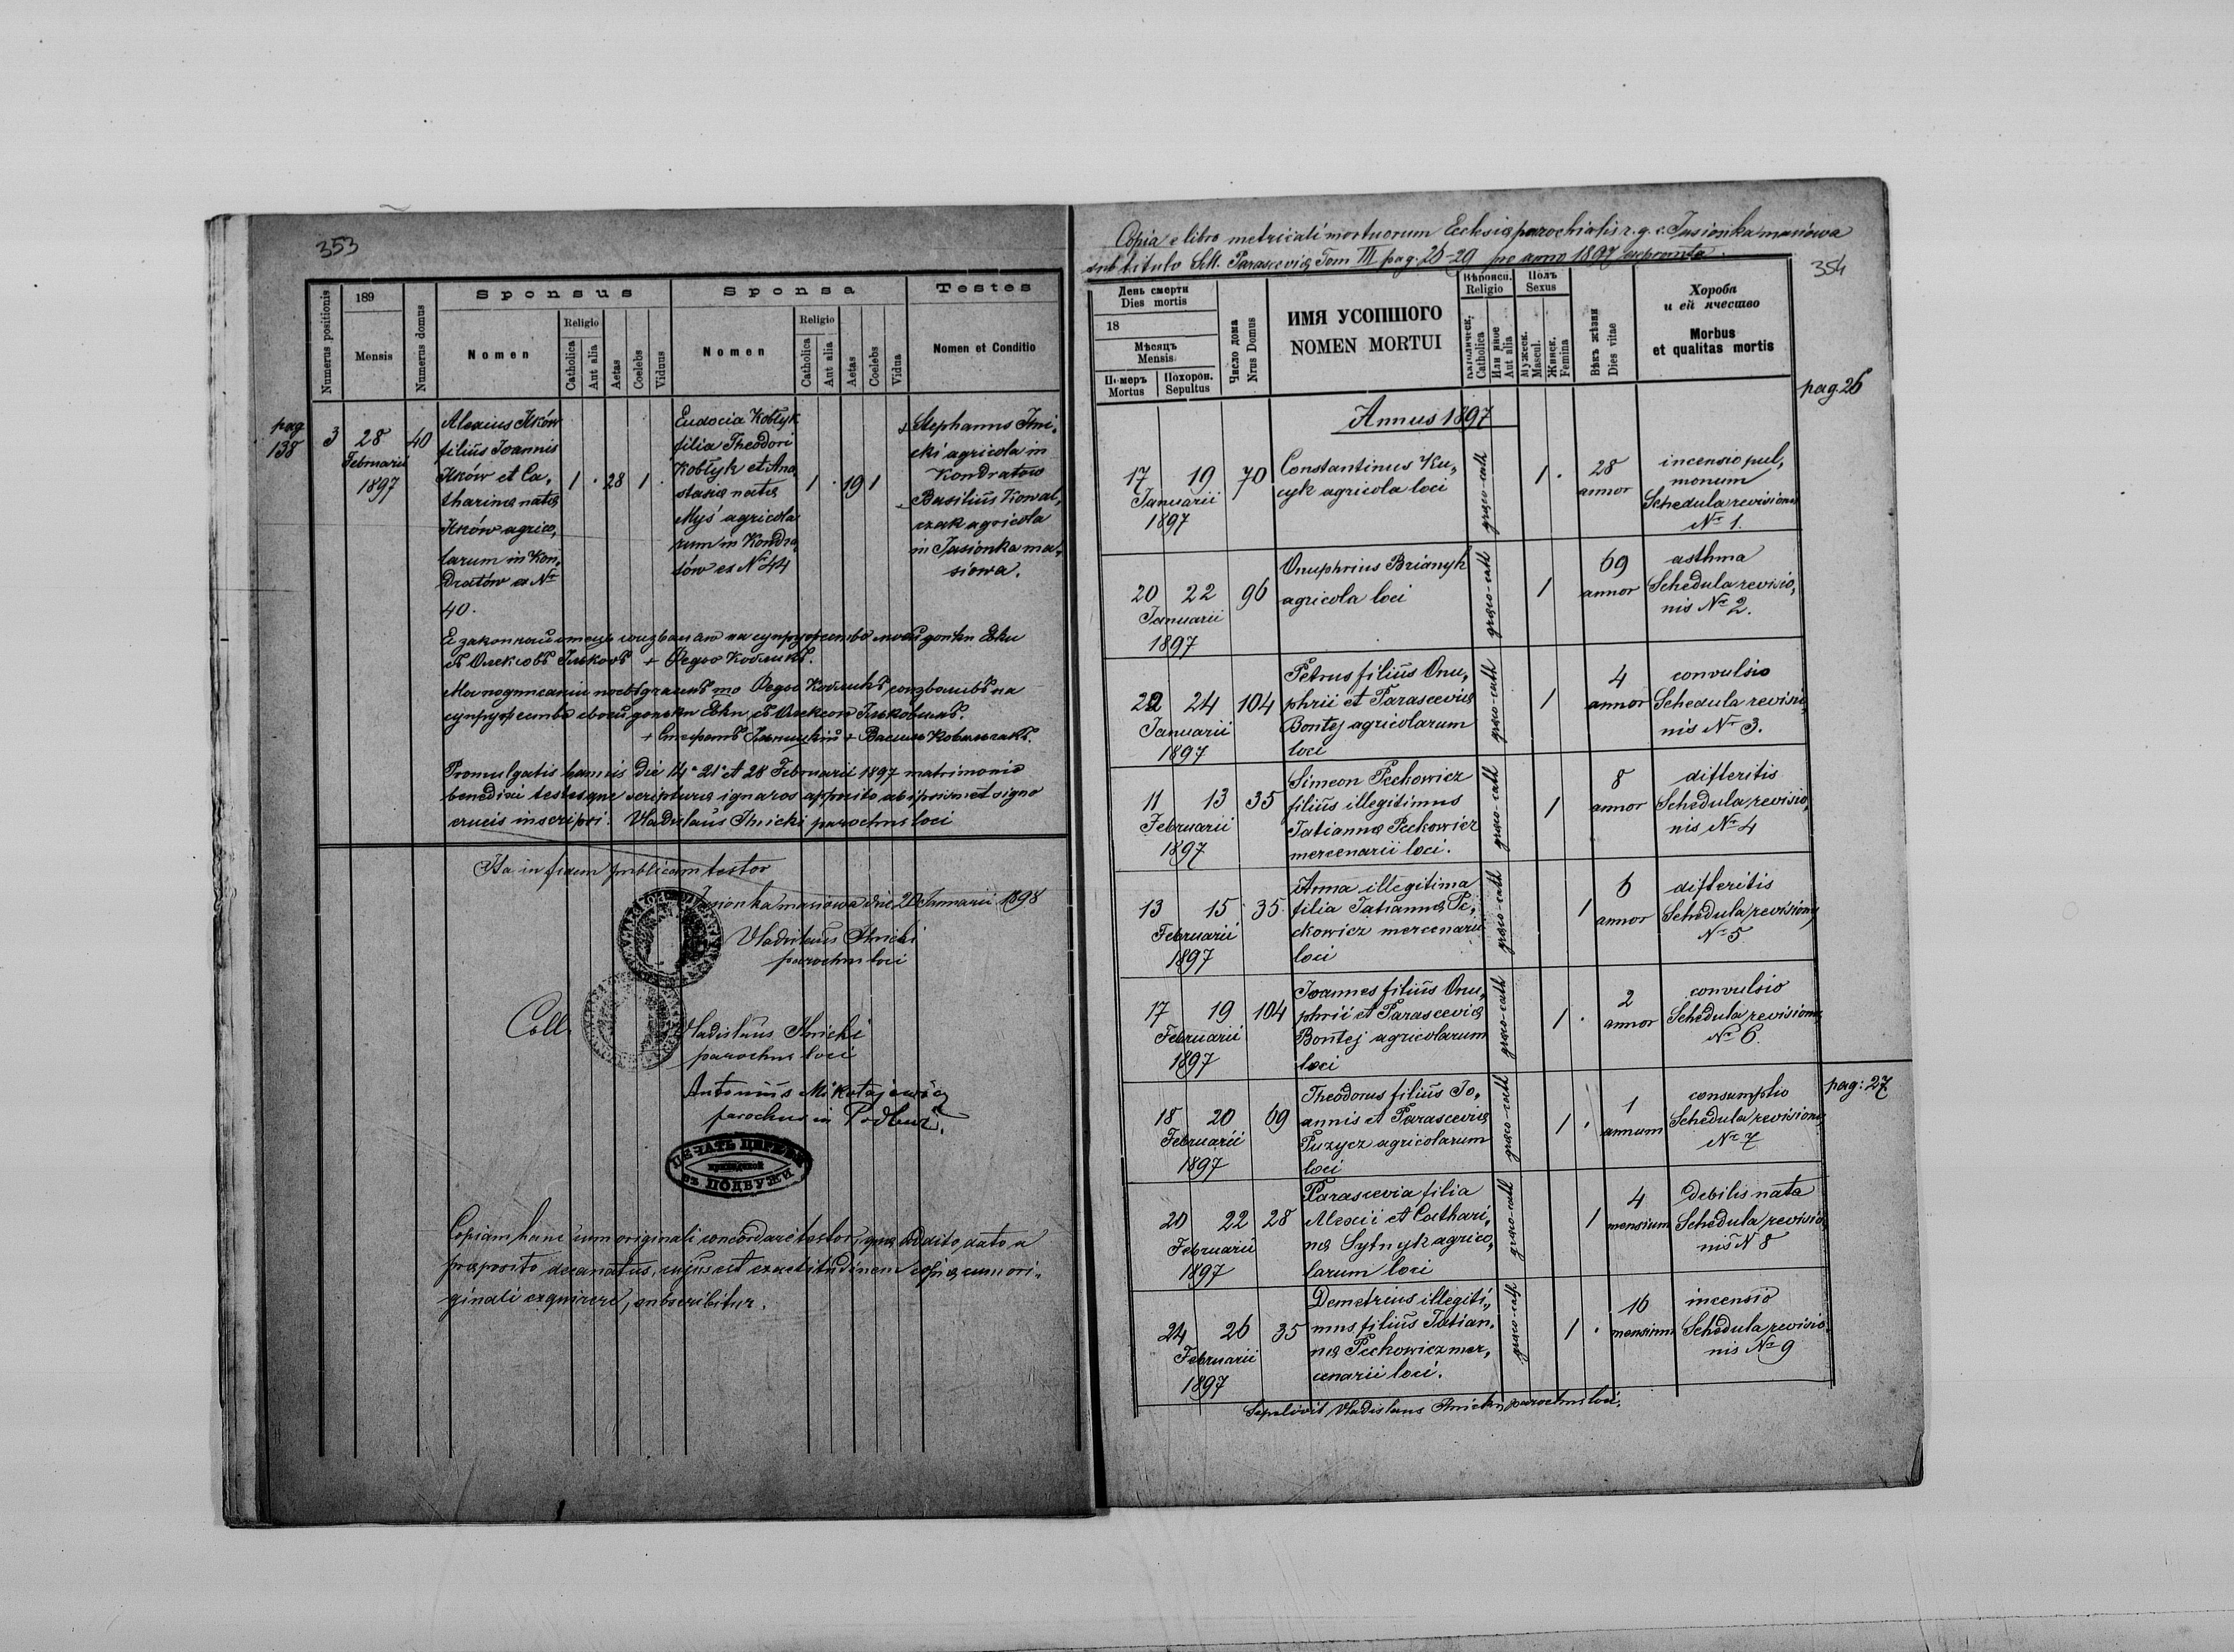 353
Numerus positionis
189
Mensis
Numerus domus
Sponsus
Nomen
Religio
Catholica
Aut alia
Aetas
Coelebs
Viduus
Sponsa
Nomen
Religio
Catholica
Aut alia
Aetas
Coelebs
Vidua
Testes
Nomen et Conditio
pag
138
3
28
Februarii
1897
40
Alexius Ilków
filius Joannis
Ilków et Ca,
tharinæ natæ
Ilków agrico,
larum in Kon,
dratów ex Nr
40.
1 . 28 1 .
Eudocia Kobłyk
filia Theodori
Kobłyk et Ana,
stasiæ natæ
Myś agricola
rum in Kondra,
tów ex Nr 44
1 . 19 1
+ Stephanus Ilni,
cki agricola in
Kondratów
+ Basilius Kowal,
czak agricola
in Jasionka ma,
siowa.
Promulgatis bannis die 14a 21a et 28 Februarii 1897 matrimonio
benedixi testesque scripturæ ignaros apposito ab ipsismet signo
crucis inscripsi. Vladislaus Ilnicki parochus loci
Ita in fidem publicam testor
Jasionka masiowa die 20 Januarii 1898
Vladislaus Ilnicki
parochus loci
Coll.
Vladislaus Ilnicki
parochus loci
Antonius Mikołajewicz
parochus in Podbuż.
ПЕЧАТЬ ЦЕРКВИ
приходской
въ ПОДБУЖИ
Copiam hanc cum originali concordare testor, quæ addito dato a
præposito decanatus, cujus est exactitudinem copiæ cum ori-
ginali exquirere, subscribitur.
Copia e libro metricali mortuorum Ecclesiæ parochialis r. g. c. Jasionka masiowa
sub titulo Sctt. Parasceviæ Tom III pag. 26-29 pro anno 1897 exprompta.
354
День смерти
Dies mortis
18
Мѣсяцъ
Mensis
Померъ
Mortus
Похорон.
Sepultus
Число дома
Nrus Domus
ИМЯ УСОПШОГО
NOMEN MORTUI
Вѣроисп.
Religio
католическ.
Catholica
Или иное
Aut alia
Полъ
Sexus
Мужеск.
Mascul.
Жѣнск.
Femina
Вѣкъ жѣзни
Dies vitae
Хороба
и ей ячество
Morbus
et qualitas mortis
pag. 26
Annus 1897
17 19 70
Januarii
1897
Constantinus Ku,
cyk agricola loci
græco-cath
1 .
28
annor
incensio pul,
monum
Schedula revisionis
Nr 1.
20 22 96
Januarii
1897
Onuphrius Brianyk
agricola loci
græco-cath
1
69
annor
asthma
Schedula revisio,
nis Nr 2.
22 24 104
Januarii
1897
Petrus filius Onu,
phrii et Parasceviæ
Bontej agricolarum
loci
græco-cath
1
4
annor
convulsio
Schedula revisio,
nis Nr 3.
11 13 35
Februarii
1897
Simeon Peckowicz
filius illegitimus
Tatiannæ Peckowicz
mercenarii loci.
græco-cath
1
8
annor
difteritis
Schedula revisio,
nis Nr 4
13 15 35
Februarii
1897
Anna illegitima
filia Tatiannæ Pe,
ckowicz mercenarii
loci
græco-cath
1
6
annor
difteritis
Schedula revisionis
Nr 5
17 19 104
Februarii
1897
Joannes filius Onu,
phrii et Parasceviæ
Bontej agricolarum
loci
græco-cath
1 .
2
annor
convulsio
Schedula revisionis
Nr 6.
pag: 27
18 20 69
Februarii
1897
Theodorus filius Jo,
annis et Parasceviæ
Puzycz agricolarum
loci
græco-cath
1 .
1
annum
consumptio
Schedula revisionis
Nr 7
20 22 28
Februarii
1897
Parascevia filia
Alexii et Cathari,
næ Sytnyk agrico,
larum loci
græco-cath
1
4
mensium
debilis nata
Schedula revisio,
nis N 8
24 26 35
Februarii
1897
Demetrius illegiti,
mus filius Tatian,
næ Peckowicz mer,
cenarii loci.
græco-cath
1 .
16
mensium
incensio
Schedula revisio,
nis Nr 9
Sepelivit Vladislaus Ilnicki parochus loci.